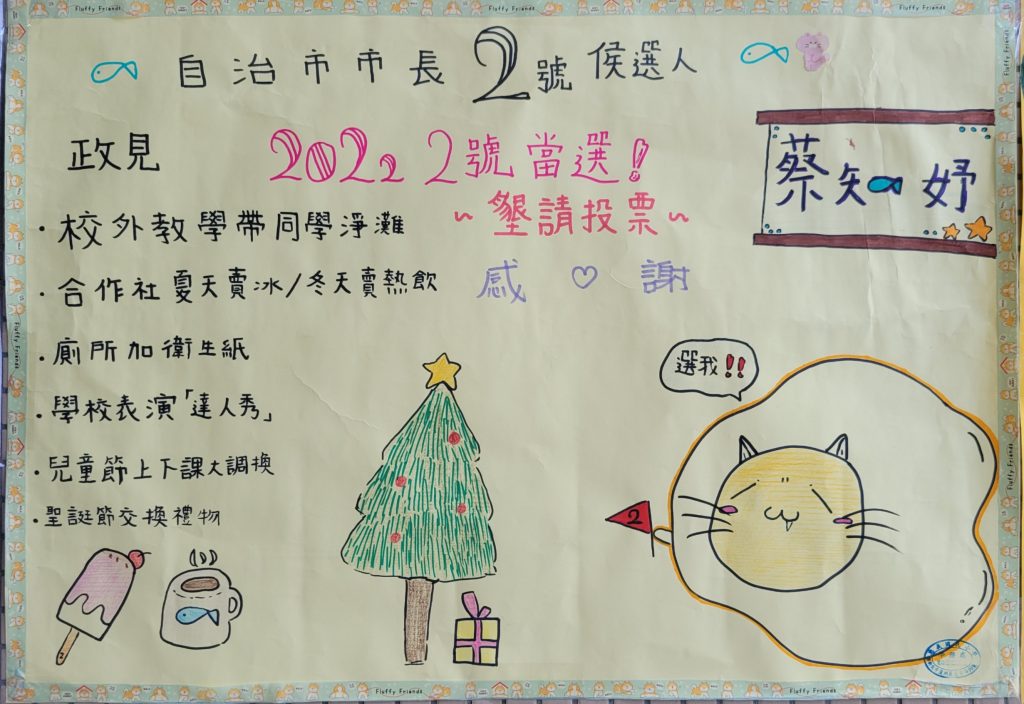 Fluffy Friends
Fluffy Friends
Fluffy Friends
自治市市長2號候選人
政見
2022 2號當選!
~墾請投票~
感♡謝
蔡知妤
·校外教學帶同學淨灘
·合作社夏天賣冰/冬天賣熱飲
·廁所加衛生紙
·學校表演「達人秀」
·兒童節上下課大調換
·聖誕節交換禮物
選我!!
2
2
Fluffy Friends
Fluffy Friends
Fluffy Friends
Fluffy Friends
Fluffy Friends